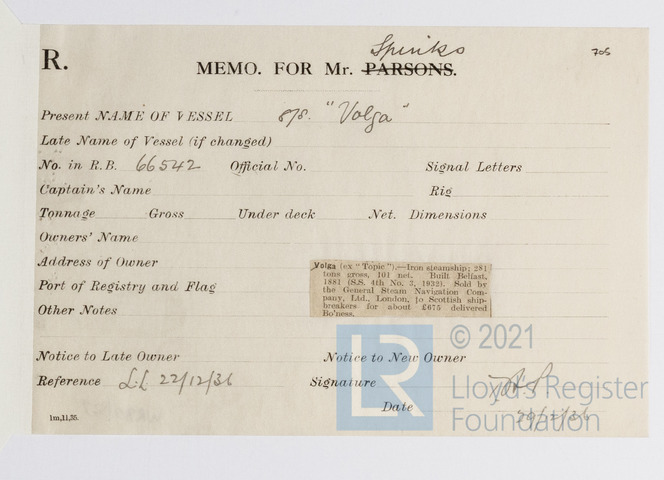 Spinks
705
R.
MEMO. FOR Mr. PARSONS.
Present NAME OF VESSEL s/s. "Volga"
Late Name of Vessel (if changed)
No. in R.B. 66542 Official No. Signal Letters
Captain's Name Rig
Tonnage Gross Under deck Net. Dimensions
Owners' Name
Address of Owner
Port of Registry and Flag
Other Notes
Volga (ex "Topic").—Iron steamship; 281
tons gross, 101 net. Built Belfast,
1881 (S.S. 4th No. 3, 1932). Sold by
the General Steam Navigation Com-
pany, Ltd., London, to Scottish ship-
breakers for about £675 delivered
Bo'ness.
Notice to Late Owner Notice to New Owner
Reference L.L 22/12/36 Signature
Date 29/12/36
1m,11,35.
LR
© 2021
Lloyd's Register
Foundation